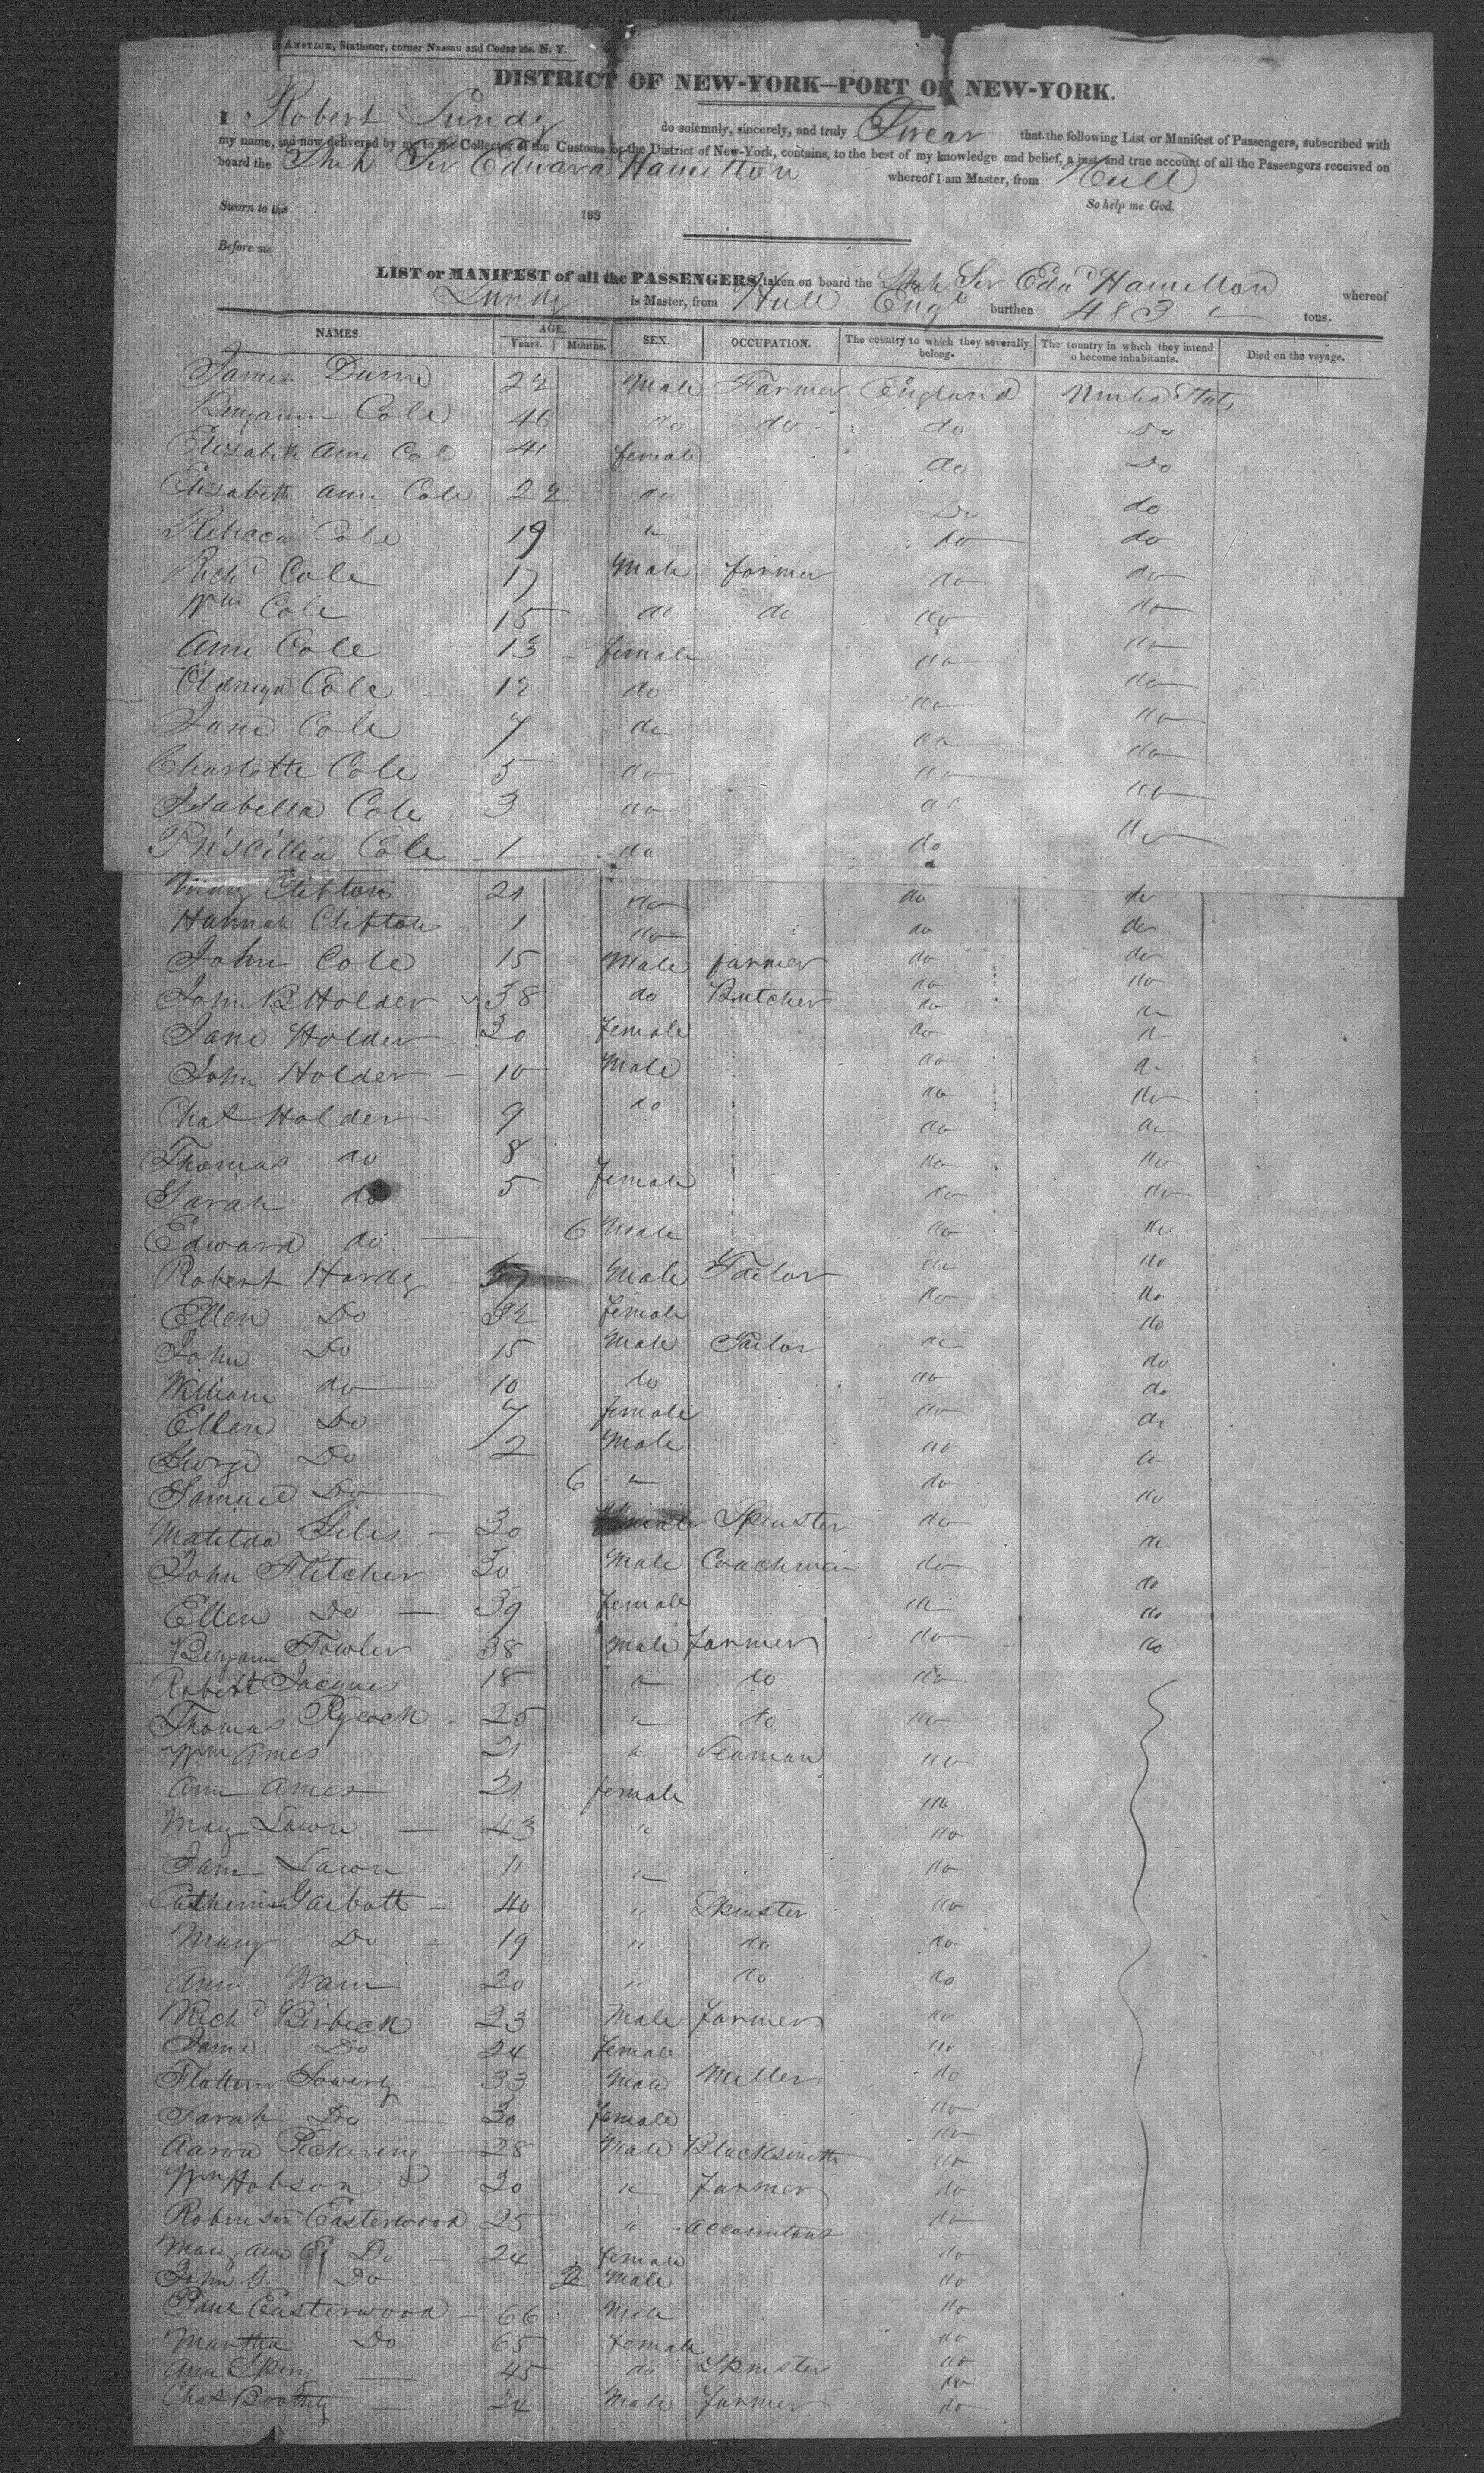 ANSTICE, Stationer, corner Nassau and Cedar sts. N. Y.
DISTRICT OF NEW-YORK—PORT OF NEW-YORK.
I Robert Lundy do solemnly, sincerely, and truly Swear that the following List or Manifest of Passengers, subscribed with
my name, and now delivered by me to the Collector of the Customs for the District of New-York, contains, to the best of my knowledge and belief, a just and true account of all the Passengers received on
board the Ship Sir Edward Hamilton whereof I am Master, from Hull
Sworn to this 183 So help me God.
Before me
LIST or MANIFEST of all the PASSENGERS taken on board the Ship Sir Edwd Hamilton whereof
Lundy is Master, from Hull Engd burthen 483 tons.
NAMES. AGE. Years. Months. SEX. OCCUPATION. The country to which they severally belong. The country in which they intend to become inhabitants. Died on the voyage.
James 22 Male Farmer England United States
Benjamin Cole 46 do do do Do
Elizabeth Ann Cole 41 female do Do
Elizabeth Ann Cole 22 do Do do
Rebecca Cole 19 " do do
Richd Cole 17 Male farmer do do
Wm Cole 15 do do do do
Ann Cole 13 female do do
Cole 12 do do do
Jane Cole 7 do do do
Charlotte Cole 5 do do do
Isabella Cole 3 do do do
Priscillia Cole 1 do do do
Clifton 21 do do do
Hannah Clifton 1 do do do
John Cole 15 Male farmer do do
John B Holder 38 do Butcher do do
Jane Holder 30 female do do
John Holder 10 Male do do
Chas Holder 9 do do do
Thomas do 8 do do
Sarah do 5 female do do
Edward do 6 Male do do
Robert Hardy Male Tailor do do
Ellen Do 32 female do do
John Do 15 Male Tailor do do
William do 10 do do do
Ellen Do 7 female do do
George Do 2 Male do do
Samuel Do 6 " do do
Matilda Giles 30 female Spinster do do
John Fletcher 30 Male Coachman do do
Ellen Do 39 female do do
Benjamin Fowler 38 Male Farmer do do
Robert Jacques 18 " do do
Thomas Rycock 25 " do do
Wm Ames 21 " Seaman do
Ann Ames 21 female do
Mary Lawn 43 " do
Jane Lawn 11 " do
Catherine Garbott 40 " Spinster do
Mary Do 19 " do do
Ann 20 " do do
Richd Birbeck 23 Male Farmer do
Jane Do 24 female do
Sowery 33 Male Miller do
Sarah Do 30 female do
Aaron Pickering 28 Male Blacksmith do
Wm Hobson 20 " Farmer do
Robinson Easterwood 25 " Accountant do
Mary Ann E Do 24 female do
John G. Do Male do
Paul Easterwood 66 Male do
Martha Do 65 female do
Ann 45 do Spinster do
Chas Boothby 24 Male Farmer do